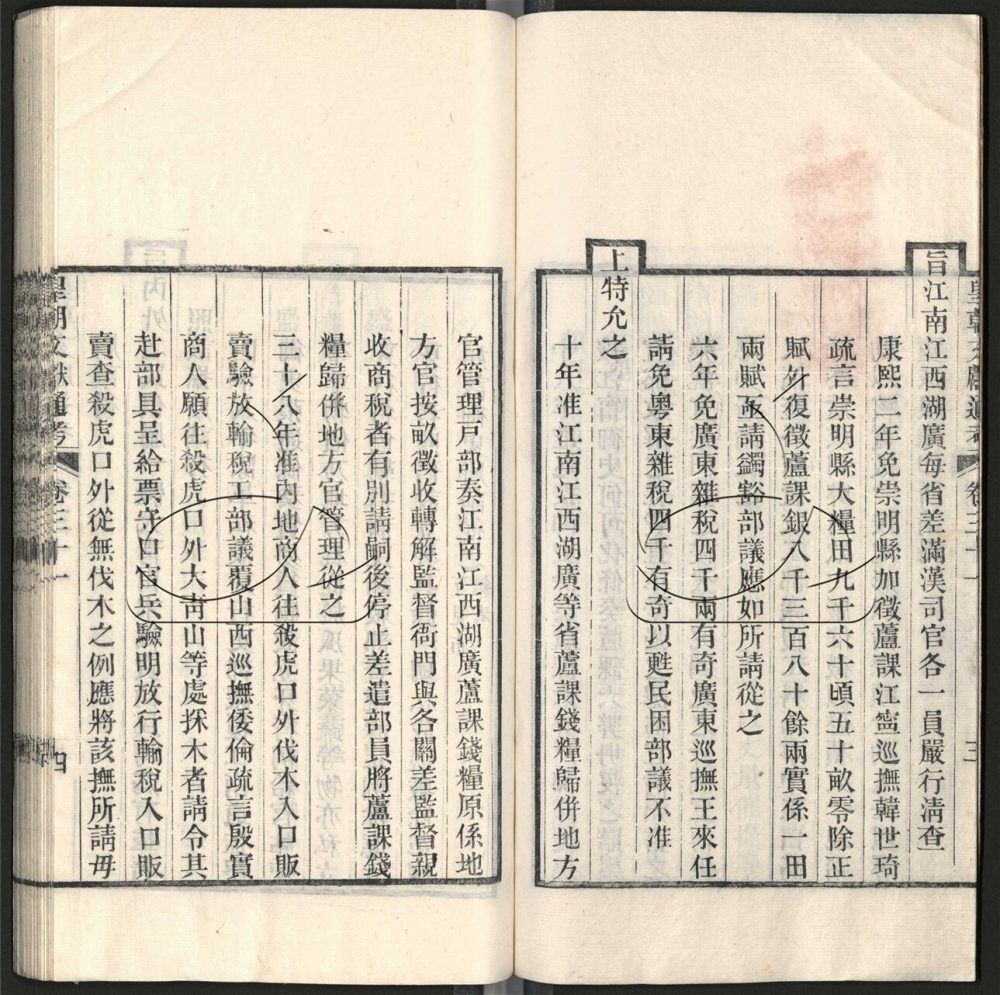 皇朝文獻通考 卷三十一 三
旨江南江西湖廣每省差滿漢司官各一員嚴行淸查
康熙二年免崇明縣加徵蘆課江寧巡撫韓世琦
疏言崇明縣大糧田九千六十頃五十畝零除正
賦外復徵蘆課銀八千三百八十餘兩實係一田
兩賦亟請蠲豁部議應如所請從之
六年免廣東雜稅四千兩有奇廣東巡撫王來任
請免粵東雜稅四千有奇以甦民困部議不准
上特允之
十年准江南江西湖廣等省蘆課錢糧歸併地方
官管理戸部奏江南江西湖廣蘆課錢糧原係地
方官按畝徵收轉解監督衙門與各關差監督親
收商稅者有別請嗣後停止差遣部員將蘆課錢
糧歸併地方官管理從之
三十八年准內地商人往殺虎口外伐木入口販
賣驗放輸稅工部議覆山西巡撫倭倫疏言殷實
商人願往殺虎口外大靑山等處採木者請令其
赴部具呈給票守口官兵驗明放行輸稅入口販
賣查殺虎口外從無伐木之例應將該撫所請毋
皇朝文獻通考 卷三十一 四